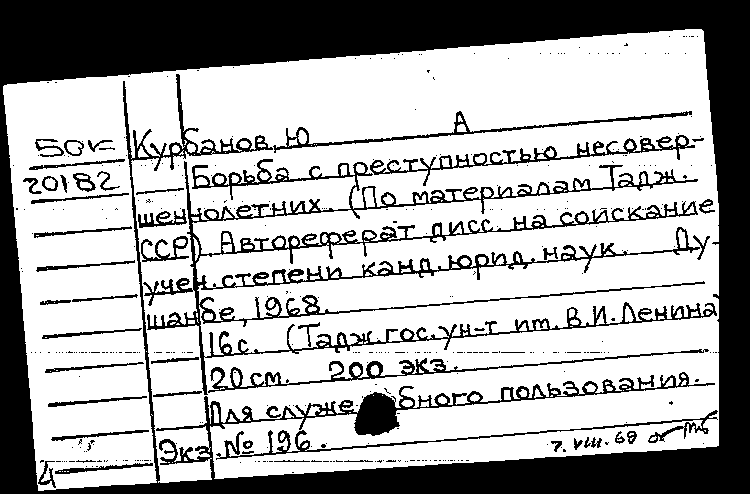 50к Курбанов, Ю А
20182 Борьба с преступностью несовер-
шеннолетних. (По материалам Тадж.
ССР). Автореферат дисс. на соискание
учен. степени канд. юрид. наук. Ду-
шанбе, 1968.
16 с. (Тадж. гос. ун-т им. В.И. Ленина)
20 см. 200 экз.
Для служебного пользования.
Экз. № 196.
7. VIII. 69
4